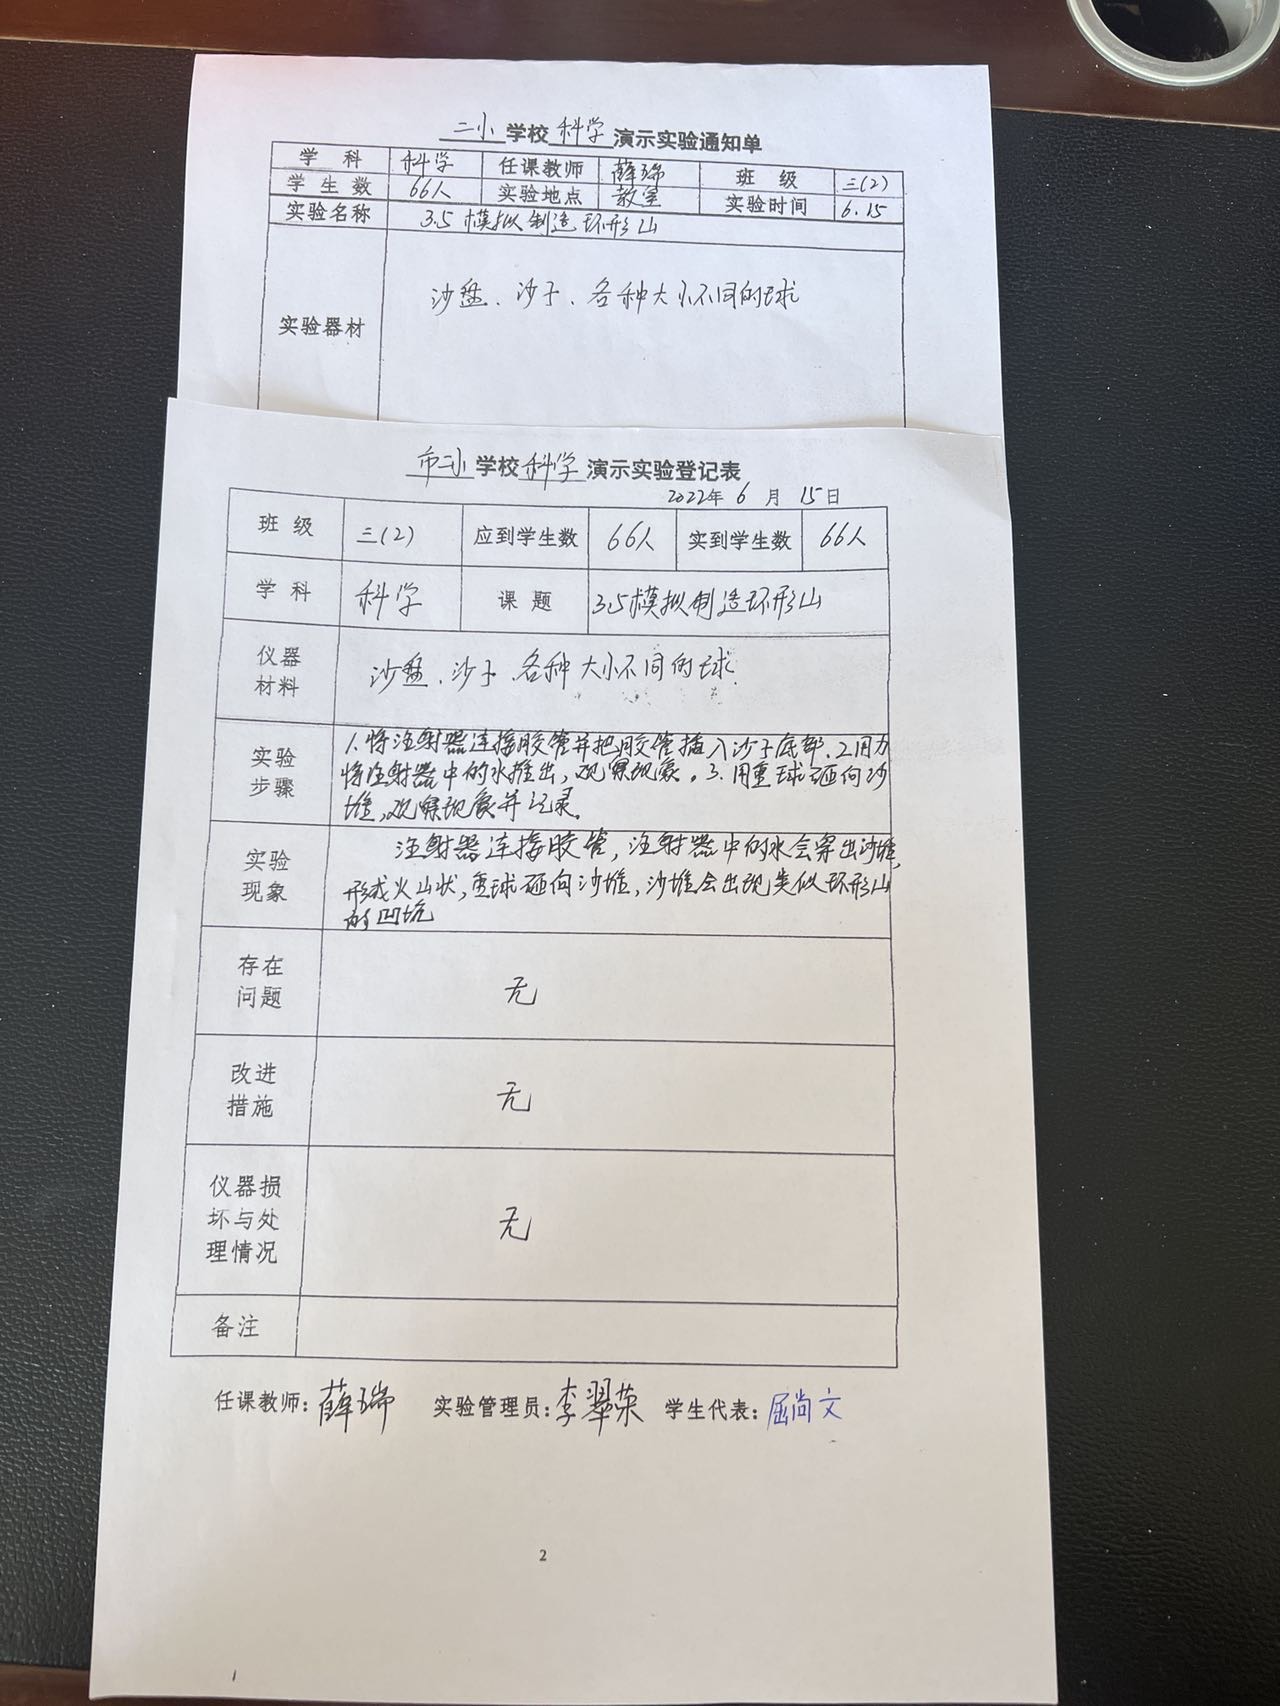 二小 学校 科学 演示实验通知单
学 科 科学 任课教师 薛瑞 班 级 三(2)
学 生 数 66人 实验地点 教室 实验时间 6.15
实验名称 3.5 模拟制造环形山
实验器材 沙盘、沙子、各种大小不同的球
市二小 学校 科学 演示实验登记表
2022年 6 月 15日
班 级 三(2) 应到学生数 66人 实到学生数 66人
学 科 科学 课 题 3.5模拟制造环形山
仪器
材料
沙盘、沙子、各种大小不同的球.
实验
步骤
1.将注射器连接胶管并把胶管插入沙子底部.2.用力
将注射器中的水推出,观察现象。3.用重球砸向沙
堆,观察现象并记录。
实验
现象
注射器连接胶管,注射器中的水会穿出沙堆,
形成火山状,重球砸向沙堆,沙堆会出现类似环形山
的凹坑
存在
问题
无
改进
措施
无
仪器损
坏与处
理情况
无
备注
任课教师:薛瑞 实验管理员:李翠荣 学生代表:屈尚文
2